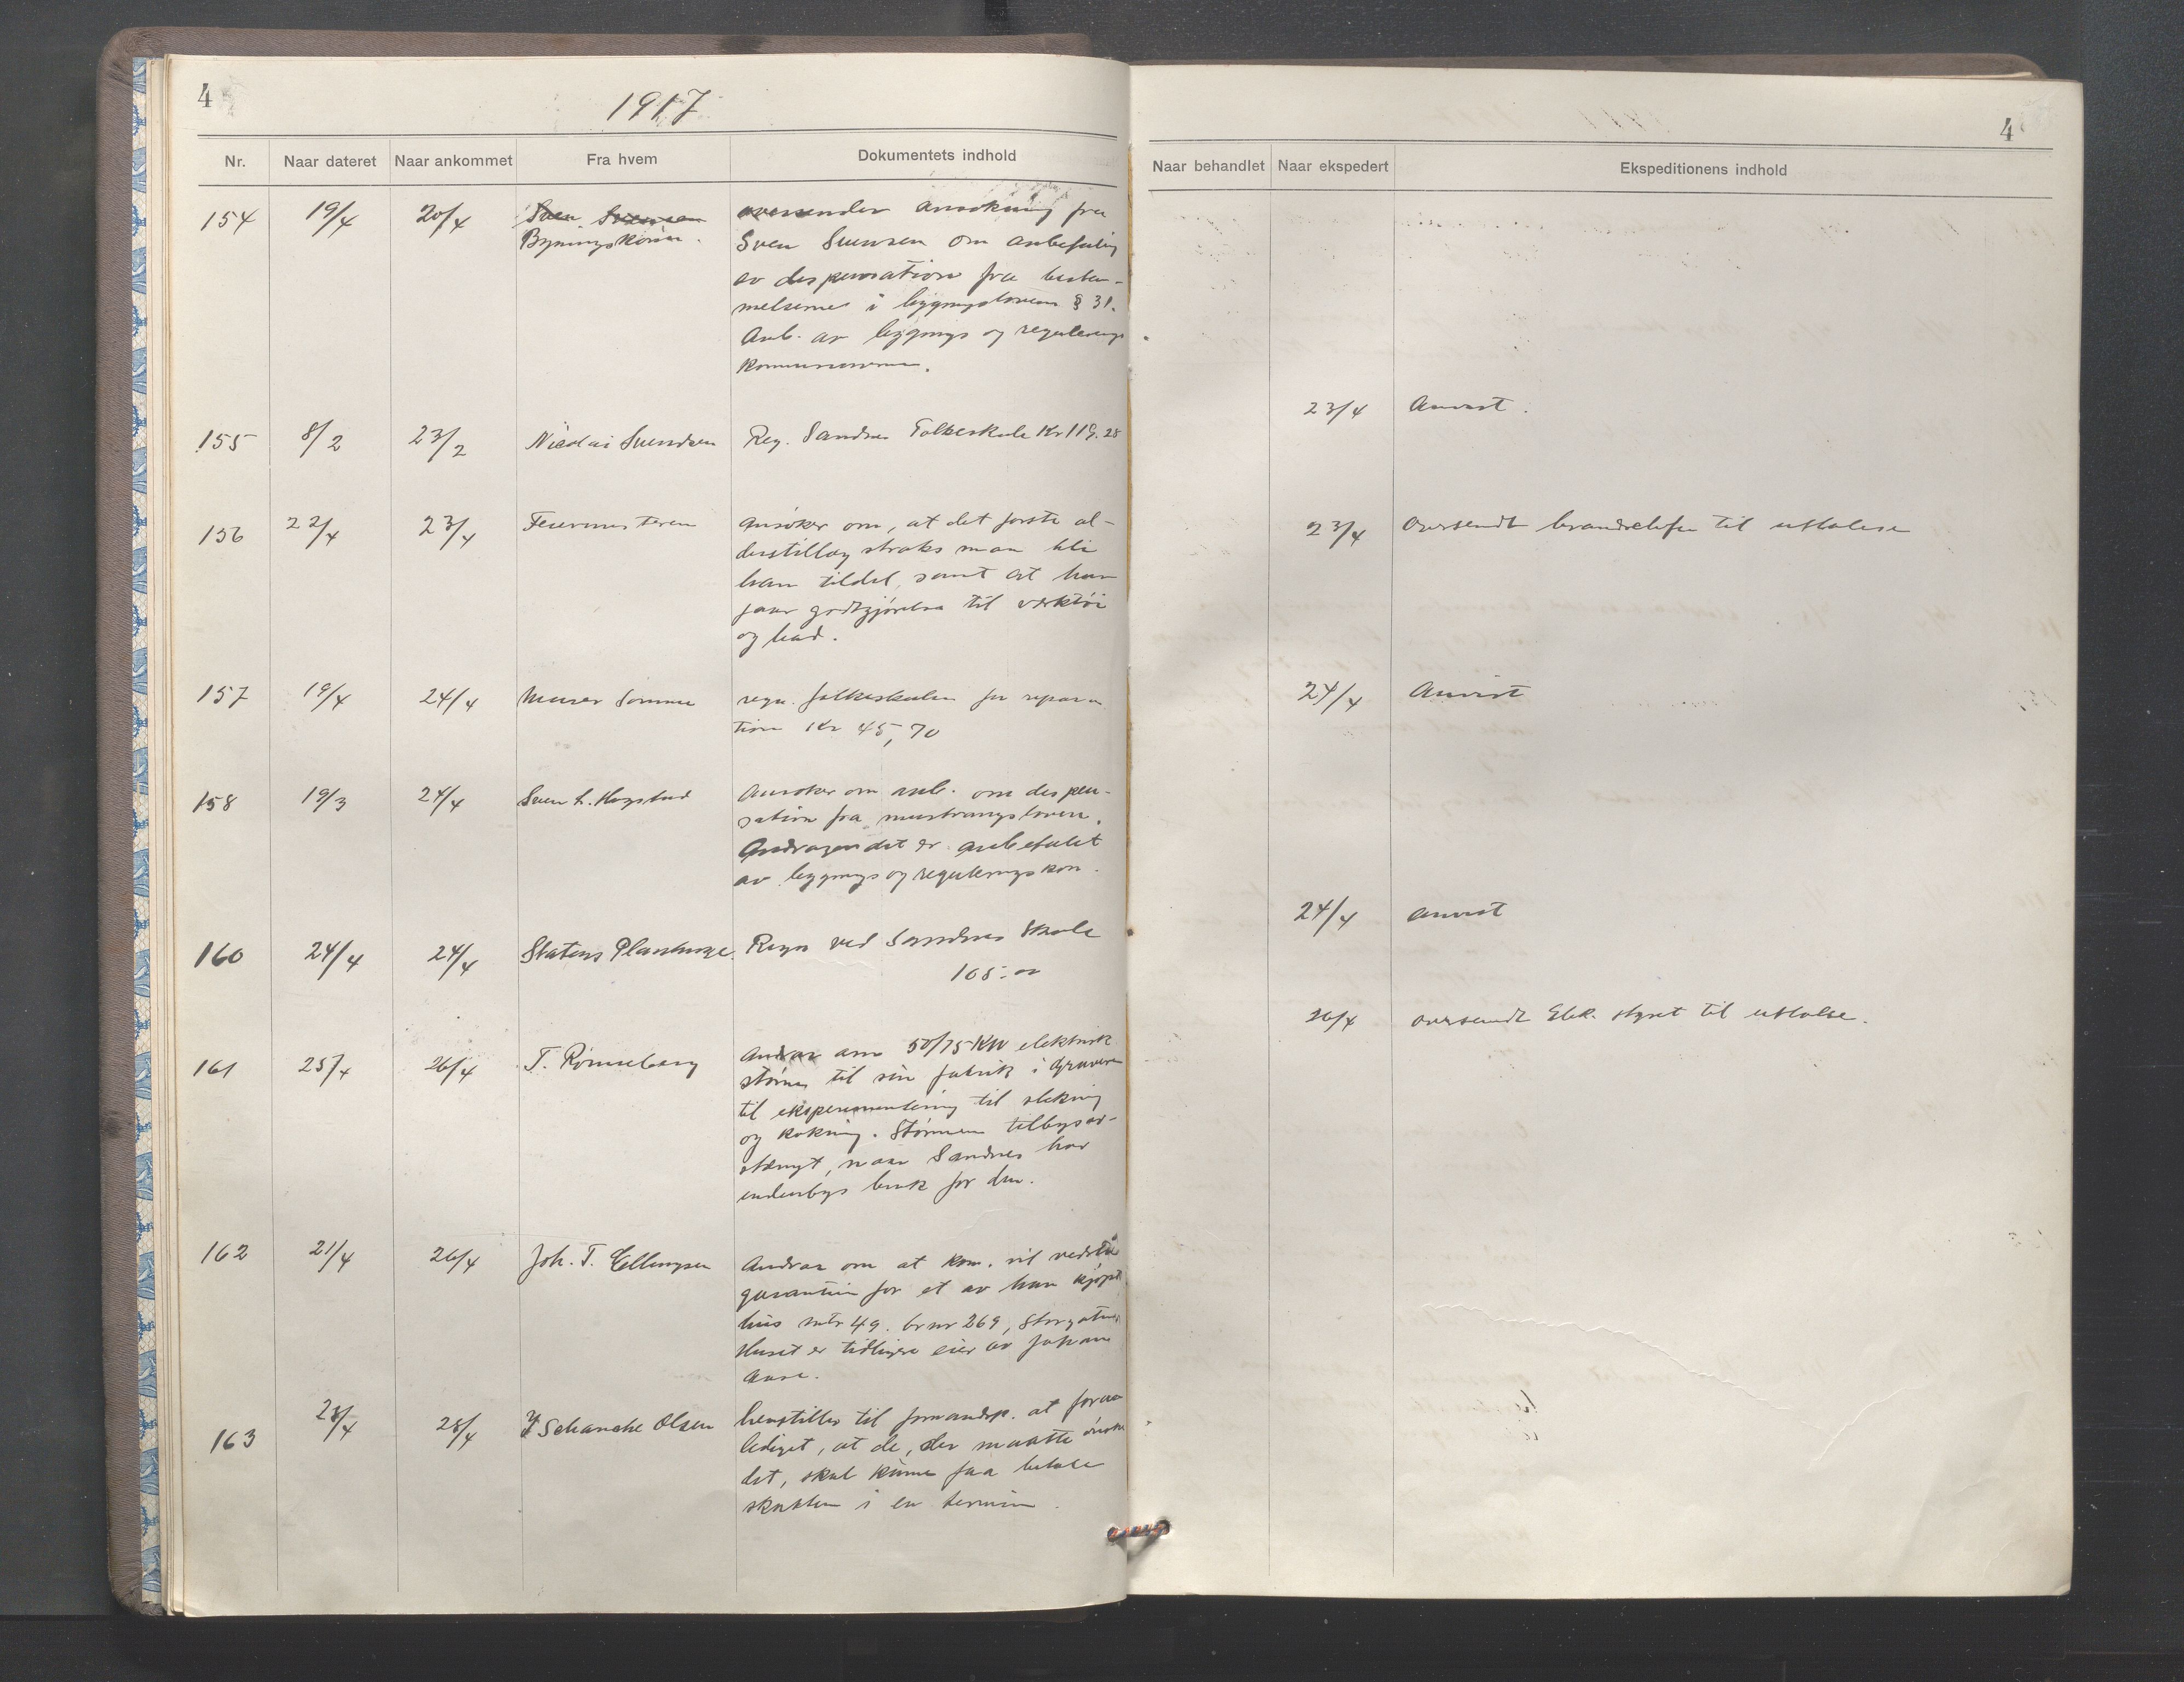 4
1917
Nr. Naar dateret Naar ankommet Fra hvem Dokumentets indhold
154 19/4 20/4 Sven Svensen oversender ansökning fra
Bygningskom. Sven Svensen om anbefaling
av dispensation fra bestem-
melserne i bygningsloven § 31.
Anb. av bygnings og regulerings
kommisionen.
155 8/2 23/2 Nicolai Svendsen Reg. Sandnes Folkeskole Kr 119.28
156 22/4 23/4 Feiermesteren Ansöker om, at det förste al-
derstillæg straks maa bli
ham tildelt, samt at han
faar godtgjörelse til verktöi
og bad.
157 19/4 24/4 Murer Somme regn. folkeskolen for repara
tion Kr 45,70
158 19/3 24/4 Sven L. Hogstad Ansöker om anb. om dispen-
sation fra murtvangsloven.
Andragendet er anbefalet
av bygnings og regulerings kom.
160 24/4 24/4 Statens Planteskole. Regn ved Sandnes Skole
105.00
161 25/4 26/4 T. Rönneberg Andrar om 50/75 KW elektrisk
ström til sin fabrik i Gravaren
til eksperimentering til stekning
og kokning. Strömmen tilbys av-
stængt, naar Sandnes har
indenbys bruk for den.
162 21/4 26/4 Joh. T. Ellingsen Andrar om at kom. vil vedstaa
garantien for et av ham kjöpt
hus mtr 49. br nr 269, Storgaten
Huset er tidligere eiet av Johan
Aase.
163 28/4 28/4 Schanche Olsen henstiller til formandsp. at foran
lediget, at de, der maatte önske
det, skal kunne faa betale
skatten i en termin.
4
Naar behandlet Naar ekspedert Ekspeditionens indhold
23/4 Anvist.
23/4 Oversendt brandchefen til uttalelse
24/4 Anvist
24/4 anvist
26/4 oversendt Elek. styret til uttalelse.